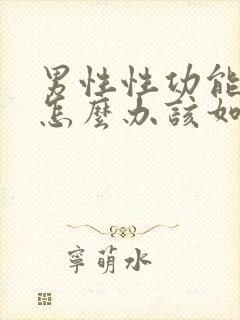 男性性功能
怎麼办該如
寧萌水